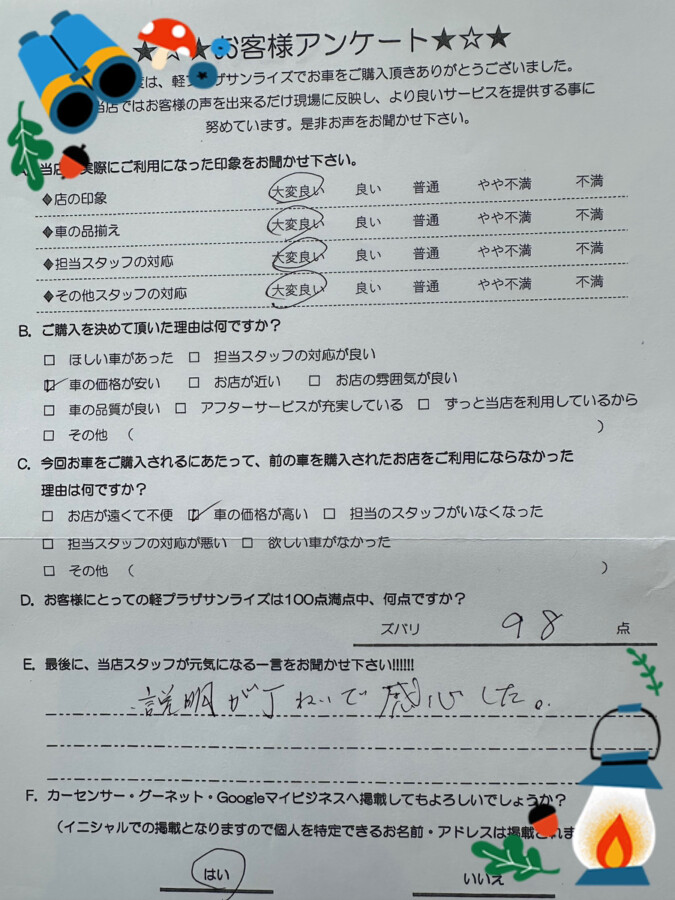 ★☆★お客様アンケート★☆★
は、軽プラザサンライズでお車をご購入頂きありがとうございました。
当店ではお客様の声を出来るだけ現場に反映し、より良いサービスを提供する事に
努めています。是非お声をお聞かせ下さい。
当店 実際にご利用になった印象をお聞かせ下さい。
◆店の印象 大変良い 良い 普通 やや不満 不満
◆車の品揃え 大変良い 良い 普通 やや不満 不満
◆担当スタッフの対応 大変良い 良い 普通 やや不満 不満
◆その他スタッフの対応 大変良い 良い 普通 やや不満 不満
B. ご購入を決めて頂いた理由は何ですか？
□ ほしい車があった □ 担当スタッフの対応が良い
☑ 車の価格が安い □ お店が近い □ お店の雰囲気が良い
□ 車の品質が良い □ アフターサービスが充実している □ ずっと当店を利用しているから
□ その他 （ ）
C. 今回お車をご購入されるにあたって、前の車を購入されたお店をご利用にならなかった
理由は何ですか？
□ お店が遠くて不便 ☑ 車の価格が高い □ 担当のスタッフがいなくなった
□ 担当スタッフの対応が悪い □ 欲しい車がなかった
□ その他 （ ）
D. お客様にとっての軽プラザサンライズは100点満点中、何点ですか？
ズバリ 98 点
E. 最後に、当店スタッフが元気になる一言をお聞かせ下さい!!!!!!
説明が丁ねいで感心した。
F. カーセンサー・グーネット・Googleマイビジネスへ掲載してもよろしいでしょうか？
（イニシャルでの掲載となりますので個人を特定できるお名前・アドレスは掲載されま
はい いいえ